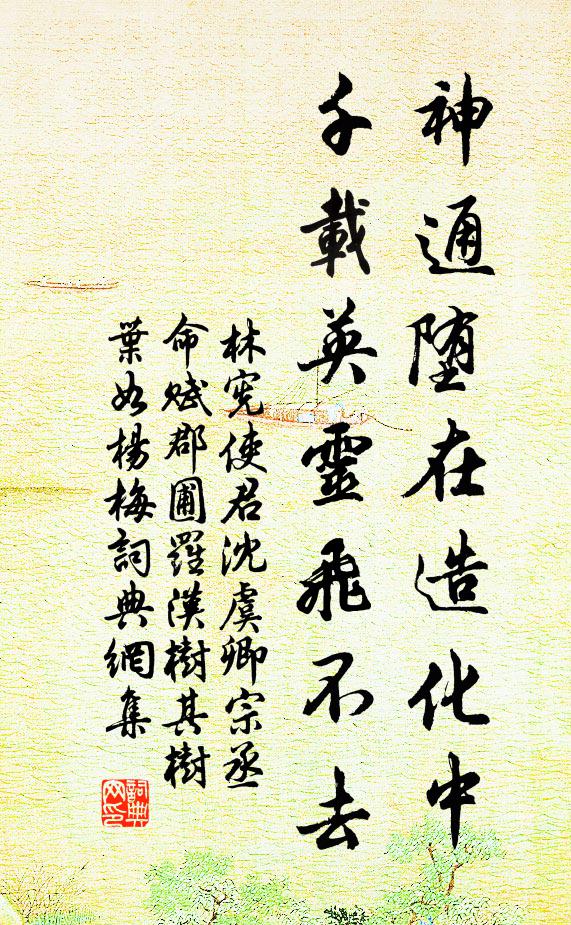 神通堕在造化中
千載英靈飛不去
林宪使君沈虞卿宗丞
命赋郡圃羅漢樹其樹
葉如楊梅詞典網集
詞典
网印